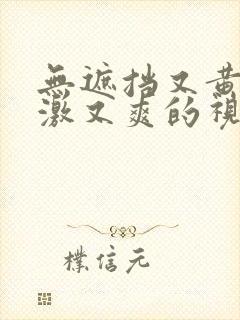 無遮挡又黄
激又爽的視
樸信元